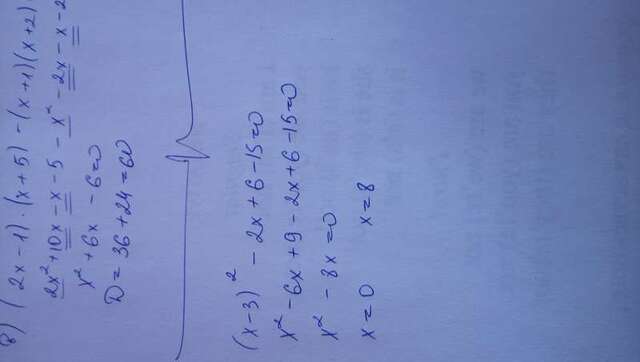 в) (2x-1)·(x+5)-(x+1)(x+2)
2x²+10x-x-5-x²-2x-x-2
x²+6x-6=0
D=36+24=60
(x-3)²-2x+6-15=0
x²-6x+9-2x+6-15=0
x²-8x=0
x=0 x=8